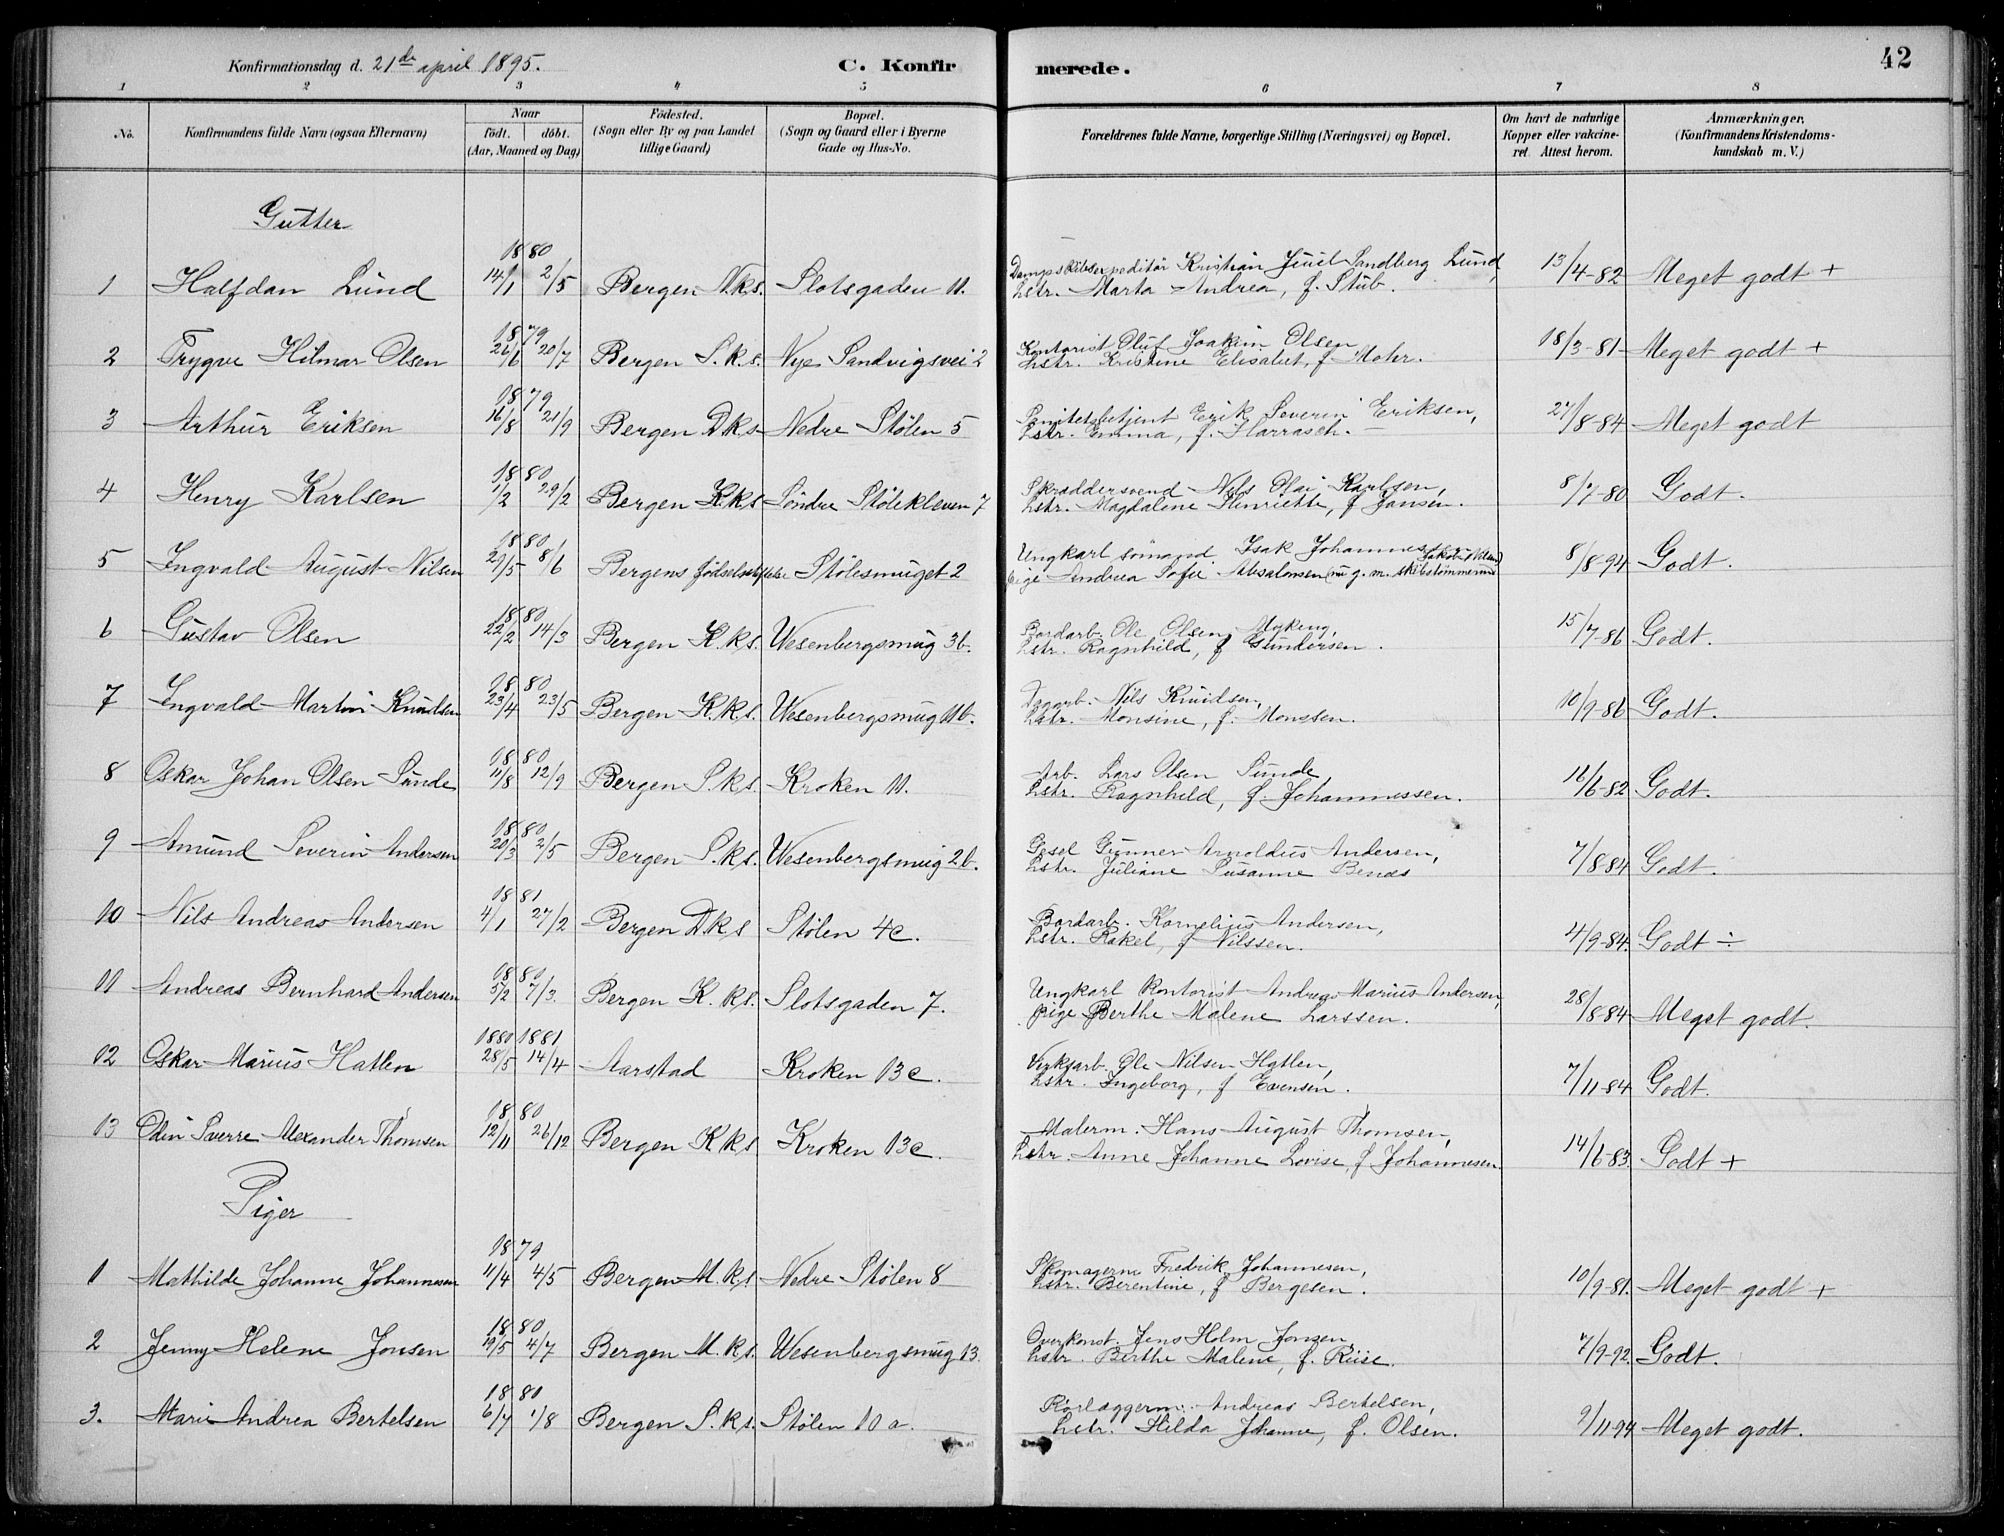 Konfirmationsdag d. 21de april 1895.
C. Konfirmerede.
42
1 2 3 4 5 6 7 8
No.
Konfirmandens fulde Navn (ogsaa Efternavn)
Naar
födt. döbt.
(Aar, Maaned og Dag)
Födested.
(Sogn eller By og paa Landet
tillige Gaard)
Bopæl.
(Sogn og Gaard eller i Byerne
Gade og Hus-No.
Forældrenes fulde Navne, borgerlige Stilling (Næringsvei) og Bopæl.
Om havt de naturlige
Kopper eller vakcine-
ret. Attest herom.
Anmærkninger.
(Konfirmandens Kristendoms-
kundskab m. V.)
Gutter
1 Halfdan Lund 1880 14/1 2/5 Bergen N.k.s. Slotsgaden 11. Dampskibsexpeditör Kristian Juul Sandberg Lund, 13/4-82 Meget godt +
hstr. Marta Andrea, f. Stub.
2 Trygve Hilmar Olsen 1879 26/6 20/7 Bergen S.k.s. Nye Sandvigsvei 2 Kontorist Oluf Joakim Olsen 18/3-81 Meget godt +
hstr. Kristine Elisabet, f. Mohr.
3 Arthur Eriksen 1879 16/8 21/9 Bergen D.k.s Nedre Stölen 5 Erik Severin Eriksen, 27/8-84 Meget godt
hstr. Emma, f. Harrasch.
4 Henry Karlsen 1880 /2 29/2 Bergen K.k.s Söndre Stölekleven 7 Skræddersvend Nils Olai Karlsen, 8/7-80 Godt.
hstr. Magdalene Henriette, f Jansen.
5 Ingvald August Nilsen 1880 29/5 8/6 Bergens fødselsstiftelse Stölesmuget 2 Ungkarl sömand Isak Johannes 8/8-94 Godt.
Pige Andrea Sofie Absalonsen (nu g. m. skibstömmermd
6 Gustav Olsen 1880 22/2 14/3 Bergen K.k.s. Wesenbergsmug 3b. Bordarb. Ole Olsen Myking, 15/7-86 Godt.
hstr. Ragnhild, f Gundersen.
7 Ingvald Martin Knudsen 1880 23/4 23/5 Bergen K.k.s. Wesenbergsmug 11b. Dagarb. Nils Knudsen, 10/9-86 Godt.
hstr. Monsine, f. Monssen.
8 Oskar Johan Olsen Sunde 1880 11/8 12/9 Bergen S.k.s. Kroken 11. Arb. Lars Olsen Sunde, 16/6-82 Godt.
hstr. Ragnhild, f. Johannessen.
9 Amund Severin Andersen 1880 20/3 2/5 Bergen S.k.s. Wesenbergsmug 2b. Gesel Gunner Arnoldus Andersen, 7/8-84 Godt.
hstr. Juliane Susanne
10 Nils Andreas Andersen 1881 4/1 27/2 Bergen D.k.s Stölen 4c. Bordarb. Kornelius Andersen, 4/9-84. Godt ÷
hstr. Rakel, f Nilssen.
11 Andreas Bernhard Andersen 1880 5/2 7/3. Bergen K.k.s. Slotsgaden 7. Ungkarl Kontorist Andreas Marius Andersen, 28/8-84 Meget godt.
pige Berthe Malene Larssen.
12 Oskar Marius Hatlen 1880 1881 28/5 14/4 Aarstad Kroken 13c. Verksarb. Ole Nilsen Hatlen, 7/11-84 Godt.
hstr. Ingeborg, f Evensen.
13 Odin Sverre Alexander Thomsen 1880 12/11 26/12 Bergen K.k.s Kroken 13c. Malerm. Hans August Thomsen, 14/6-83. Godt +
hstr. Anne Johanne Lovise, f Johannesen.
Piger
1 Mathilde Johanne Johannesen 1879 11/4 4/5 Bergen M.k.s. Nedre Stölen 8 Skomagerm Fredrik Johannesen, 10/9-81. Meget godt +
hstr. Berentine, f Bergesen.
2 Jenny Helene Jonsen 1880 19/5 4/7 Bergen M.k.s. Wesenbergsmug 13. Overkonst. Jens Holm Jonsen 7/9-92. Godt.
hstr. Berthe Malene, f. Riise.
3. Marie Andrea Bertelsen 1880 6/7 1/8 Bergen S.k.s. Stölen 10 a. Rörlæggerm. Andreas Bertelsen, 9/11-94 Meget godt.
hstr. Hilda Johanne, f. Olsen.